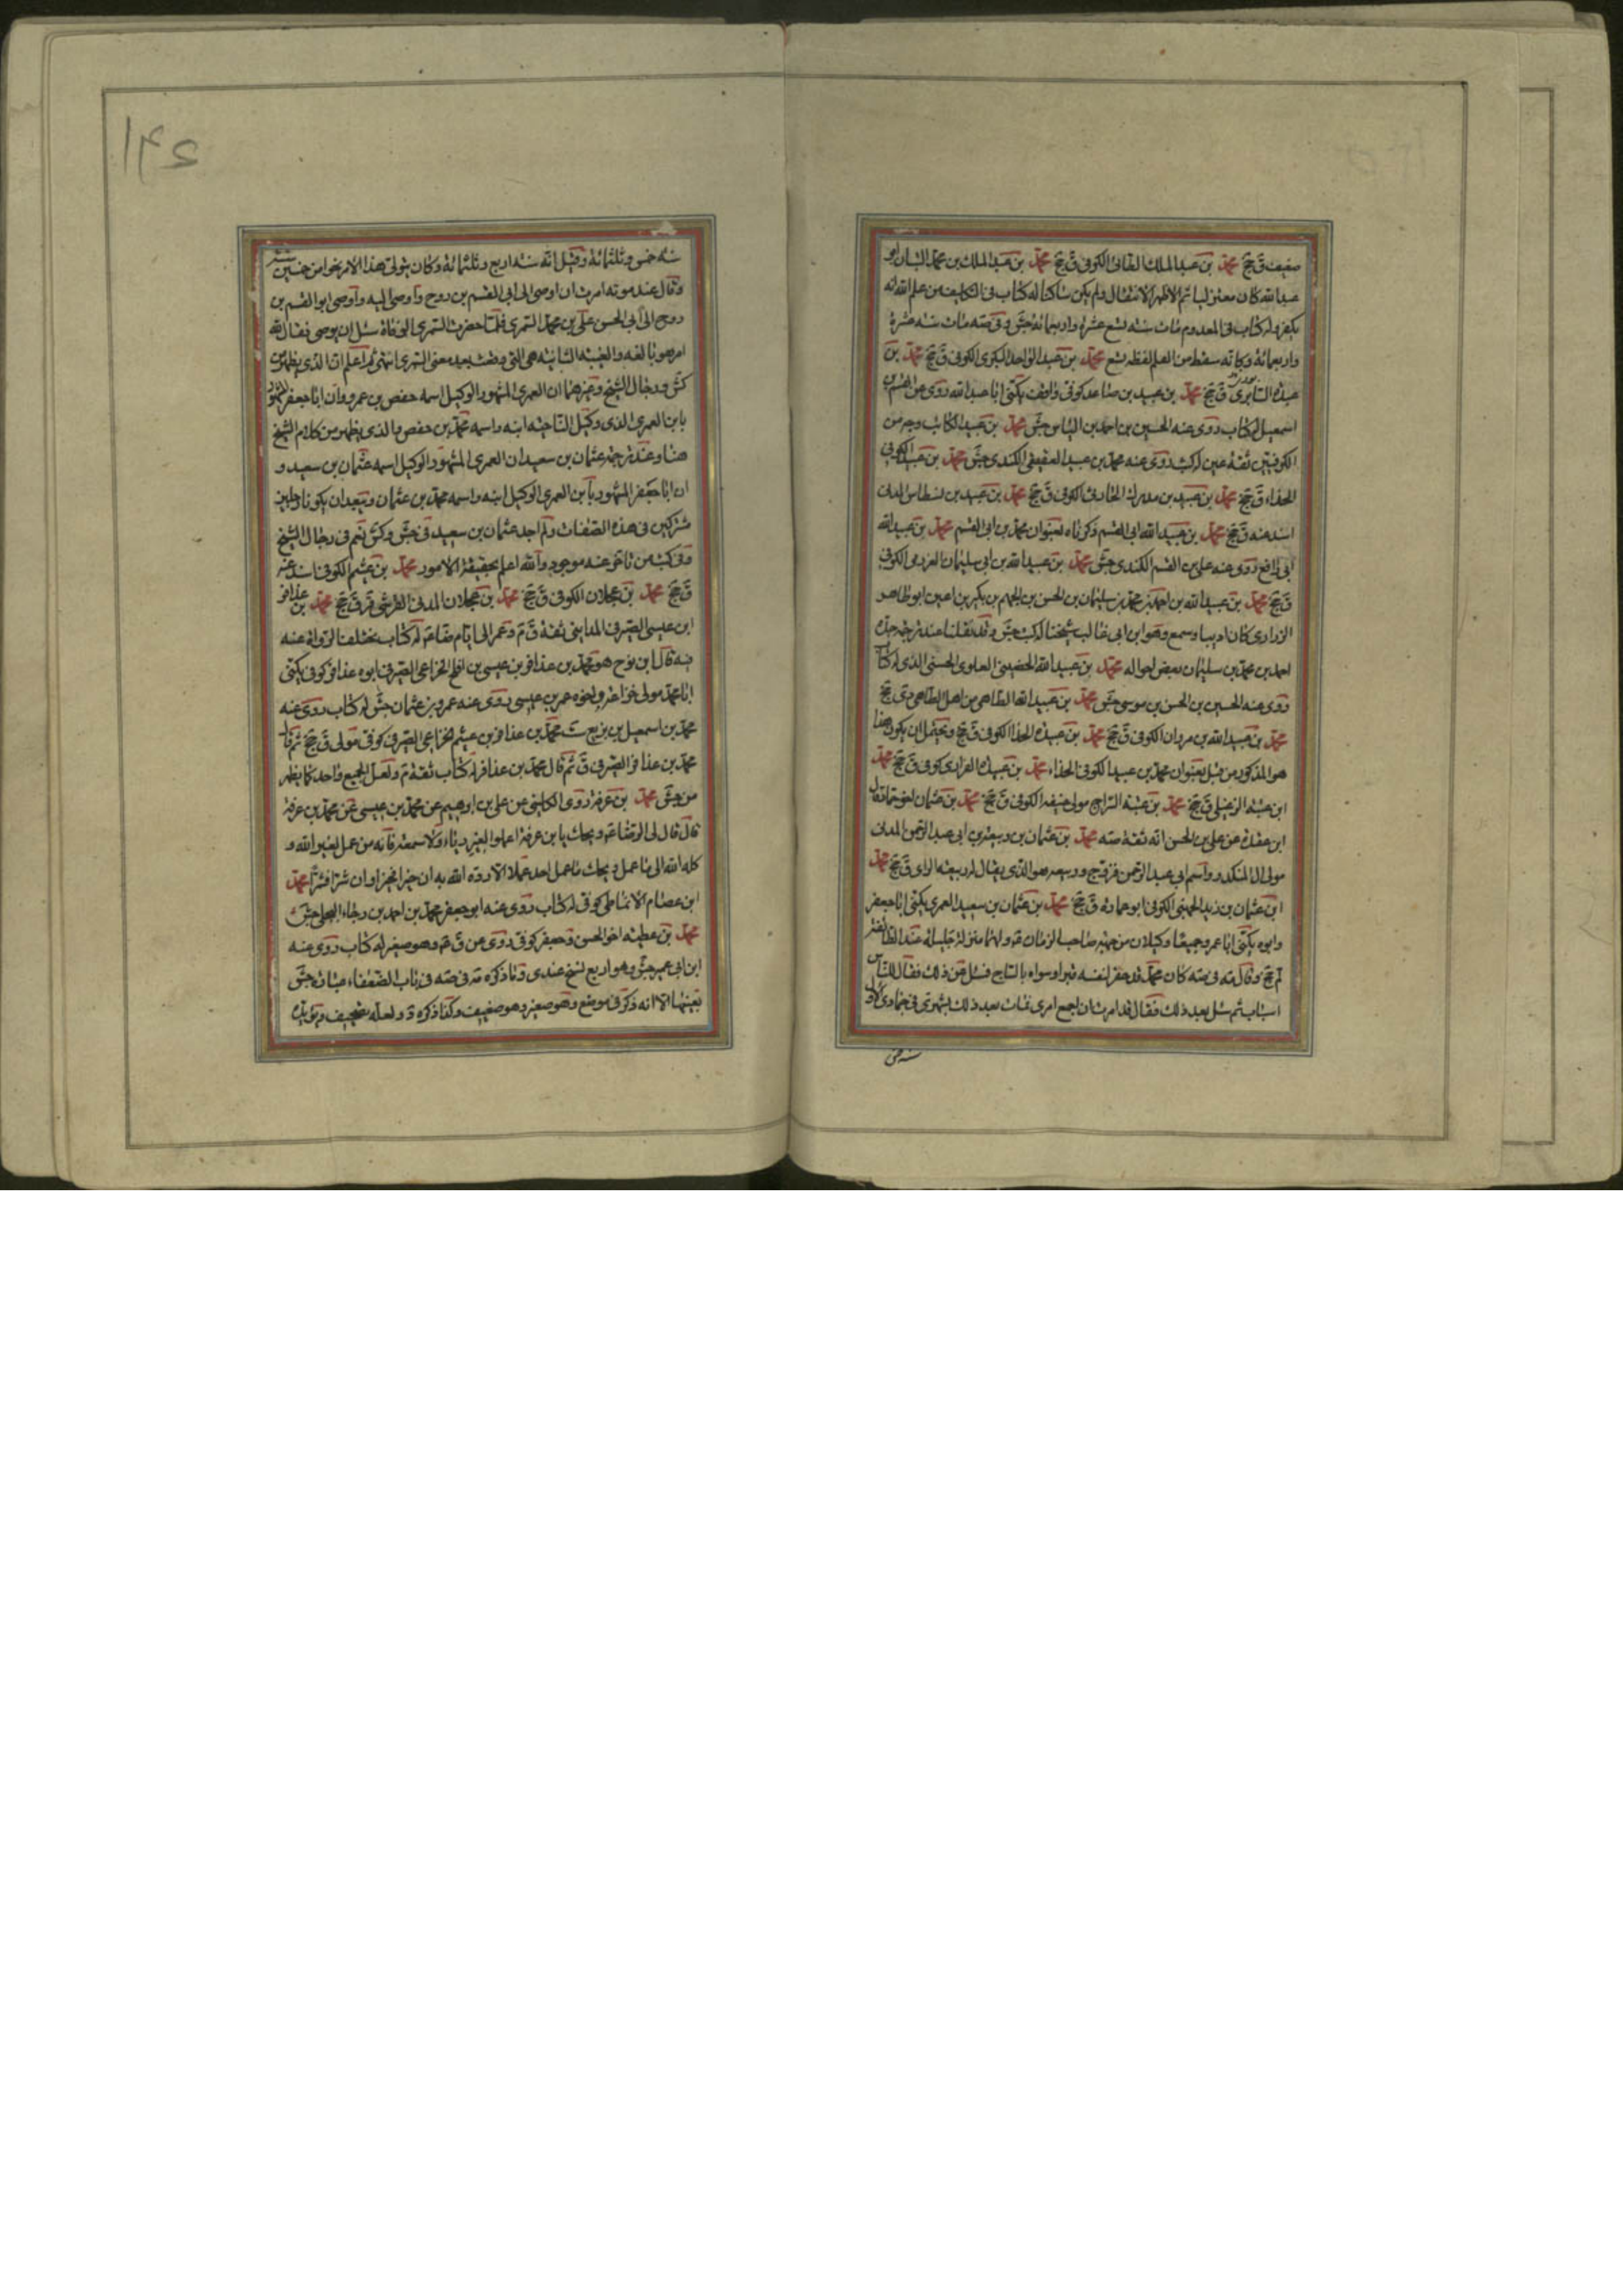 ضعيف ق جخ محمد بن عبد الملك القنانى الكوفى ق جخ محمد بن عبد الملك بن محمد التبان ابو
عبد الله كان معتزليا ثم اظهر الانتقال ولم يكن ساكنا له كتاب فى التكليف من علم الله انه
يكفر وله كتاب فى المعدوم مات سنة تسع عشرة واربعمائة جش وفى صه مات سنة عشرة
واربعمائة وكانه سقط من القلم لفظة تسع محمد بن عبد الواحد البكرى الكوفى ق جخ محمد بن
عبدة السابرى ق جخ محمد بن عبيد بن صاعد كوفى واقف يكنى ابا عبد الله روى عن القسم بن
اسمعيل له كتاب روى عنه الحسين بن احمد بن الياس جش محمد بن عبيد الكاتب وجه من
الكوفيين ثقة عين له كتب روى عنه محمد بن عبيد العقيقى الكندى جش محمد بن عبيد الكوفى
الحذاء ق جخ محمد بن عبيد بن مدرك الحارثى الكوفى ق جخ محمد بن عبيد بن نسطاس المدنى
اسند عنه ق جخ محمد بن عبيد الله ابى القسم ذكرناه بعنوان محمد بن ابى القسم محمد بن عبيد الله
ابى رافع روى عنه على بن القسم الكندى جش محمد بن عبيد الله بن ابى سليمان العرزمى الكوفى
ق جخ محمد بن عبيد الله بن احمد بن محمد بن سليمان بن الحسن بن الجهم بن بكير بن اعين ابو طاهر
الزرارى كان اديبا وسمع وهو ابن ابى غالب شيخنا له كتب جش وقد نقلنا عند ترجمة جده
احمد بن محمد بن سليمان بعض احواله محمد بن عبيد الله الحضينى العلوى الحسنى الذى له كتاب
روى عنه الحسين بن الحسن بن موسى جش محمد بن عبيد الله الطاهى من اهل الطاهى دى جخ
محمد بن عبيد الله بن مروان الكوفى ق جخ محمد بن عبيدة الحذاء الكوفى ق جخ ويحتمل ان يكون هذا
هو المذكور من قبل بعنوان محمد بن عبيد الكوفى الحذاء محمد بن عبيدة الفزارى كوفى ق جخ محمد
ابن عتبة ق جخ محمد بن عتبة السراج مولى حنيفة الكوفى ق جخ محمد بن عثمان اخو حماد نقل
ابن عقدة عن على بن الحسن انه ثقة صه محمد بن عثمان بن ربيعة بن ابى عبد الرحمن المدنى
مولى ال المنكدر واسم ابى عبد الرحمن فروخ وربيعة هو الذى يقال له ربيعة الراى ق جخ محمد
ابن عثمان بن زيد الجهنى الكوفى ابو عمارة ق جخ محمد بن عثمان بن سعيد العمرى يكنى ابا جعفر
وابوه يكنى ابا عمرو جميعا وكيلان من جهة صاحب الزمان عه ولهما منزلة جليلة عند الطائفة
لم جخ وقال مه فى صه كان محمد قد حفر لنفسه قبرا وسواه بالساج فسئل عن ذلك فقال للناس
اسباب ثم سئل بعد ذلك فقال قد امرت ان اجمع امرى فمات بعد ذلك بشهرين فى جمادى الاولى
سنة خمس
سنة خمس وثلثمائة وقيل انه سنة اربع وثلثمائة وكان يتولى هذا الامر نحوا من خمسين سنة
وقال عند موته امرت ان اوصى الى ابى القسم بن روح واوصى اليه واوصى ابو القسم بن
روح الى ابى الحسن على بن محمد السمرى فلما حضرت السمرى الوفاة سئل ان يوصى فقال لله
امر هو بالغه والغيبة الثانية هى التى وقعت بعد مضى السمرى انتهى ثم اعلم ان الذى يظهر من
كش ورجال الشيخ وغيرهما ان العمرى المشهور الوكيل اسمه حفص بن عمرو وان ابا جعفر المشهور
بابن العمرى الذى وكيل الناحية ابنه واسمه محمد بن حفص والذى يظهر من كلام الشيخ
هنا وعند ترجمة عثمان بن سعيد ان العمرى المشهور الوكيل اسمه عثمان بن سعيد و
ان ابا جعفر المشهور بابن العمرى الوكيل ابنه واسمه محمد بن عثمان ويبعد ان يكونا رجلين
مشتركين فى هذه الصفات ولم اجد عثمان بن سعيد فى جش وكش نعم فى رجال الشيخ
وفى كتب من تاخر عنه موجود والله اعلم بحقيقة الامور محمد بن عثيم الكوفى اسند عنه
ق جخ محمد بن عجلان الكوفى ق جخ محمد بن عجلان المدنى القرشى قر ق جخ محمد بن عذافر
ابن عيسى الصيرفى المداينى ثقة ق م وعمر الى ايام ضا عه له كتاب تختلف الرواة عنه
فيه قال ابن نوح هو محمد بن عذافر بن عيسى بن افلح الخزاعى الصيرفى ابوه عذافر كوفى يكنى
ابا محمد مولى خزاعة واخوه عمر بن عيسى روى عنه عمرو بن عثمان جش له كتاب روى عنه
محمد بن اسمعيل بن بزيع ست محمد بن عذافر بن عيثم الخزاعى الصيرفى كوفى مولى ق جخ ثم قال
محمد بن عذافر الصيرفى ق ثم قال محمد بن عذافر له كتاب ثقة م ولعل الجميع واحد كما يظهر
من جش محمد بن عرفة روى الكلينى عن على بن ابرهيم عن محمد بن عيسى عن محمد بن عرفة
قال قال لى الرضا عه ويحك يا ابن عرفة اعملوا لغير رياء ولا سمعة فانه من عمل لغير الله و
كله الله الى ما عمل ويحك ما عمل احد عملا الا رده الله به ان خيرا فخيرا وان شرا فشرا محمد
ابن عصام الانماطى كوفى له كتاب روى عنه ابو جعفر محمد بن احمد بن رجاء البجلى جش
محمد بن عطية اخو الحسن وجعفر كوفى روى عن ق عه وهو صغير له كتاب روى عنه
ابن ابى عمير جش وهو اربع نسخ عندى وما ذكره مه فى صه فى باب الضعفاء عبارة جش
بعينها الا انه ذكر فى موضع وهو صغير وهو ضعيف وكذا ذكره د ولعله تصحيف ويؤيده